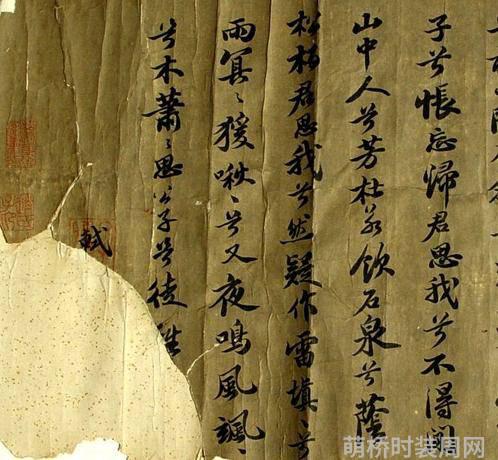 子兮悵忘歸君思我兮不得閒
山中人兮芳杜若飲石泉兮蔭
松柏君思我兮然疑作雷填〻兮
雨冥〻猨啾〻兮又夜鳴風颯〻
兮木蕭〻思公子兮徒
軾
萌桥时装周网